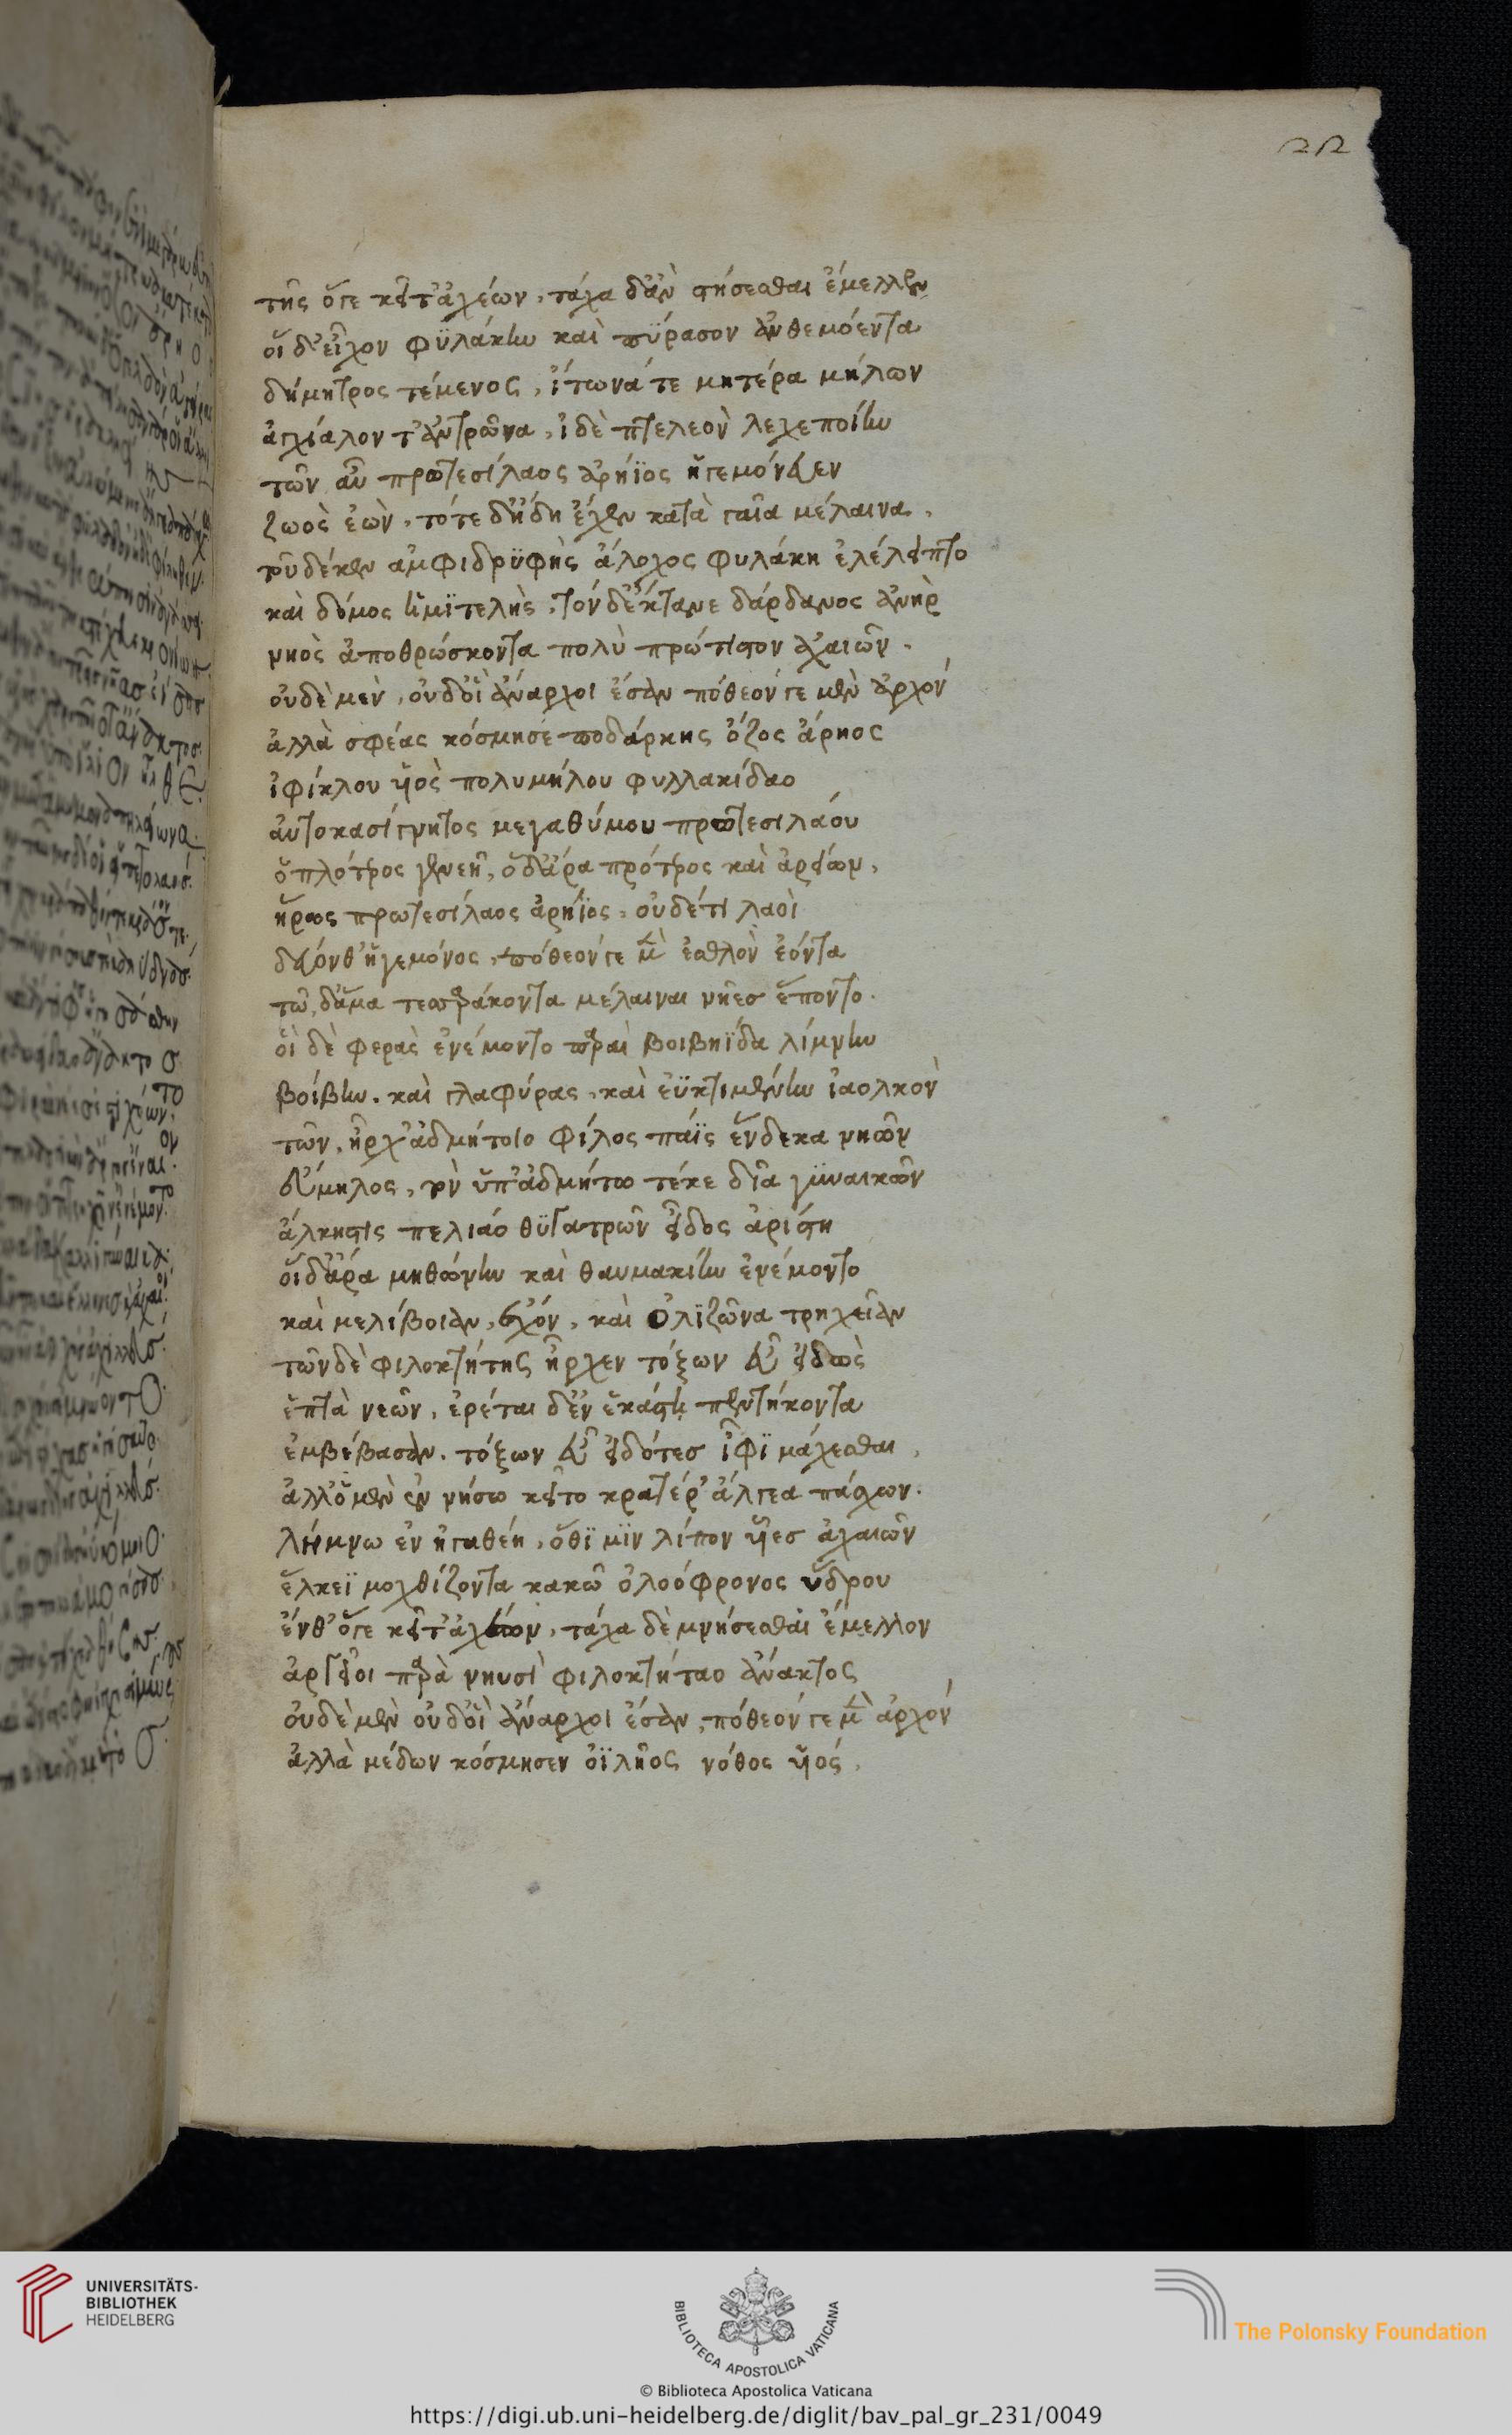 22
τῆς ὅγε κεῖτ' ἀχέων, τάχα δ' ἀν στήσεσθαι ἔμελλεν
οἳ δ' εἶχον φϋλάκην καὶ πϋράσον ἀνθεμόεντα
δήμητρος τέμενος, ἴτωνά τε μητέρα μήλων
ἀγχίαλον τ' ἀντρῶνα, ἰδὲ πτελεὸν λεχεποίην
τῶν αὖ πρωτεσίλαος ἀρήϊος ἡγεμόνευεν
ζωὸς ἐὼν, τότε δ' ἤδη ἔχεν κατὰ γαῖα μέλαινα.
τοῦ δέ κεν ἀμφιδρϋφὴς ἄλοχος φυλάκη ἐλέλειπτο
καὶ δόμος ἡμϊτελὴς, τὸν δ' ἔκτανε δάρδανος ἀνὴρ
νηὸς ἀποθρώσκοντα πολὺ πρώτιστον ἀχαιῶν.
οὐδὲ μὲν, οὐδ' οἳ ἄναρχοι ἔσαν πόθεόν γε μὲν ἀρχόν
ἀλλὰ σφέας κόσμησε ποδάρκης ὄζος ἄρηος
ἰφίκλου υἱὸς πολυμήλου φυλλακίδαο
αὐτοκασίγνητος μεγαθύμου πρωτεσιλάου
ὁπλότερος γενεῆ, ὁ δ' ἄρα πρότερος καὶ ἀρείων,
ἥρως πρωτεσίλαος ἀρήϊος, οὐδέ τι λαοὶ
δεύονθ' ἡγεμόνος, πόθεόν γε μὲν ἐσθλὸν ἐόντα
τῶ, δ' ἅμα τεσσαράκοντα μέλαιναι νῆες ἕποντο.
οἳ δὲ φερὰς ἐνέμοντο παραὶ βοιβηΐδα λίμνην
βοίβην. καὶ γλαφύρας, καὶ ἐϋκτιμένην ἰαολκὸν
τῶν, ἦρχ' ἀδμήτοιο φίλος πάϊς ἕνδεκα νηῶν
εὔμηλος, τὸν ὑπ' ἀδμήτω τέκε δῖα γϋναικῶν
ἄλκηστις πελίαο θϋγατρῶν εἶδος ἀρίστη
οἳ δ' ἄρα μηθώνην καὶ θαυμακίην ἐνέμοντο
καὶ μελίβοιαν, ἔχον, καὶ ὀλϊζῶνα τρηχεῖαν
τῶν δὲ φιλοκτήτης ἦρχεν τόξων εὖ εἰδὼς
ἑπτὰ νεῶν, ἐρέται δ' ἐν ἑκάστη πεντήκοντα
ἐμβέβασαν. τόξων εὖ εἰδότες ἶφϊ μάχεσθαι,
ἀλλ' ὁ μὲν ἐν νήσω κεῖτο κρατέρ' ἄλγεα πάσχων.
λήμνω ἐν ἠγαθέη, ὅθϊ μϊν λίπον υἷες ἀχαιῶν
ἕλκεϊ μοχθίζοντα κακῶ ὀλοόφρονος ὕδρου
ἔνθ' ὅγε κεῖτ' ἀχέων, τάχα δὲ μνήσεσθαι ἔμελλον
ἀργεῖοι παρὰ νηυσὶ φιλοκτήταο ἄνακτος
οὐδὲ μὲν οὐδ' οἳ ἄναρχοι ἔσαν, πόθεόν γε μὲν ἀρχόν
ἀλλὰ μέδων κόσμησεν ὀϊλῆος νόθος υἱός.
UNIVERSITÄTS-
BIBLIOTHEK
HEIDELBERG
BIBLIOTECA APOSTOLICA VATICANA
The Polonsky Foundation
© Biblioteca Apostolica Vaticana
https://digi.ub.uni-heidelberg.de/diglit/bav_pal_gr_231/0049